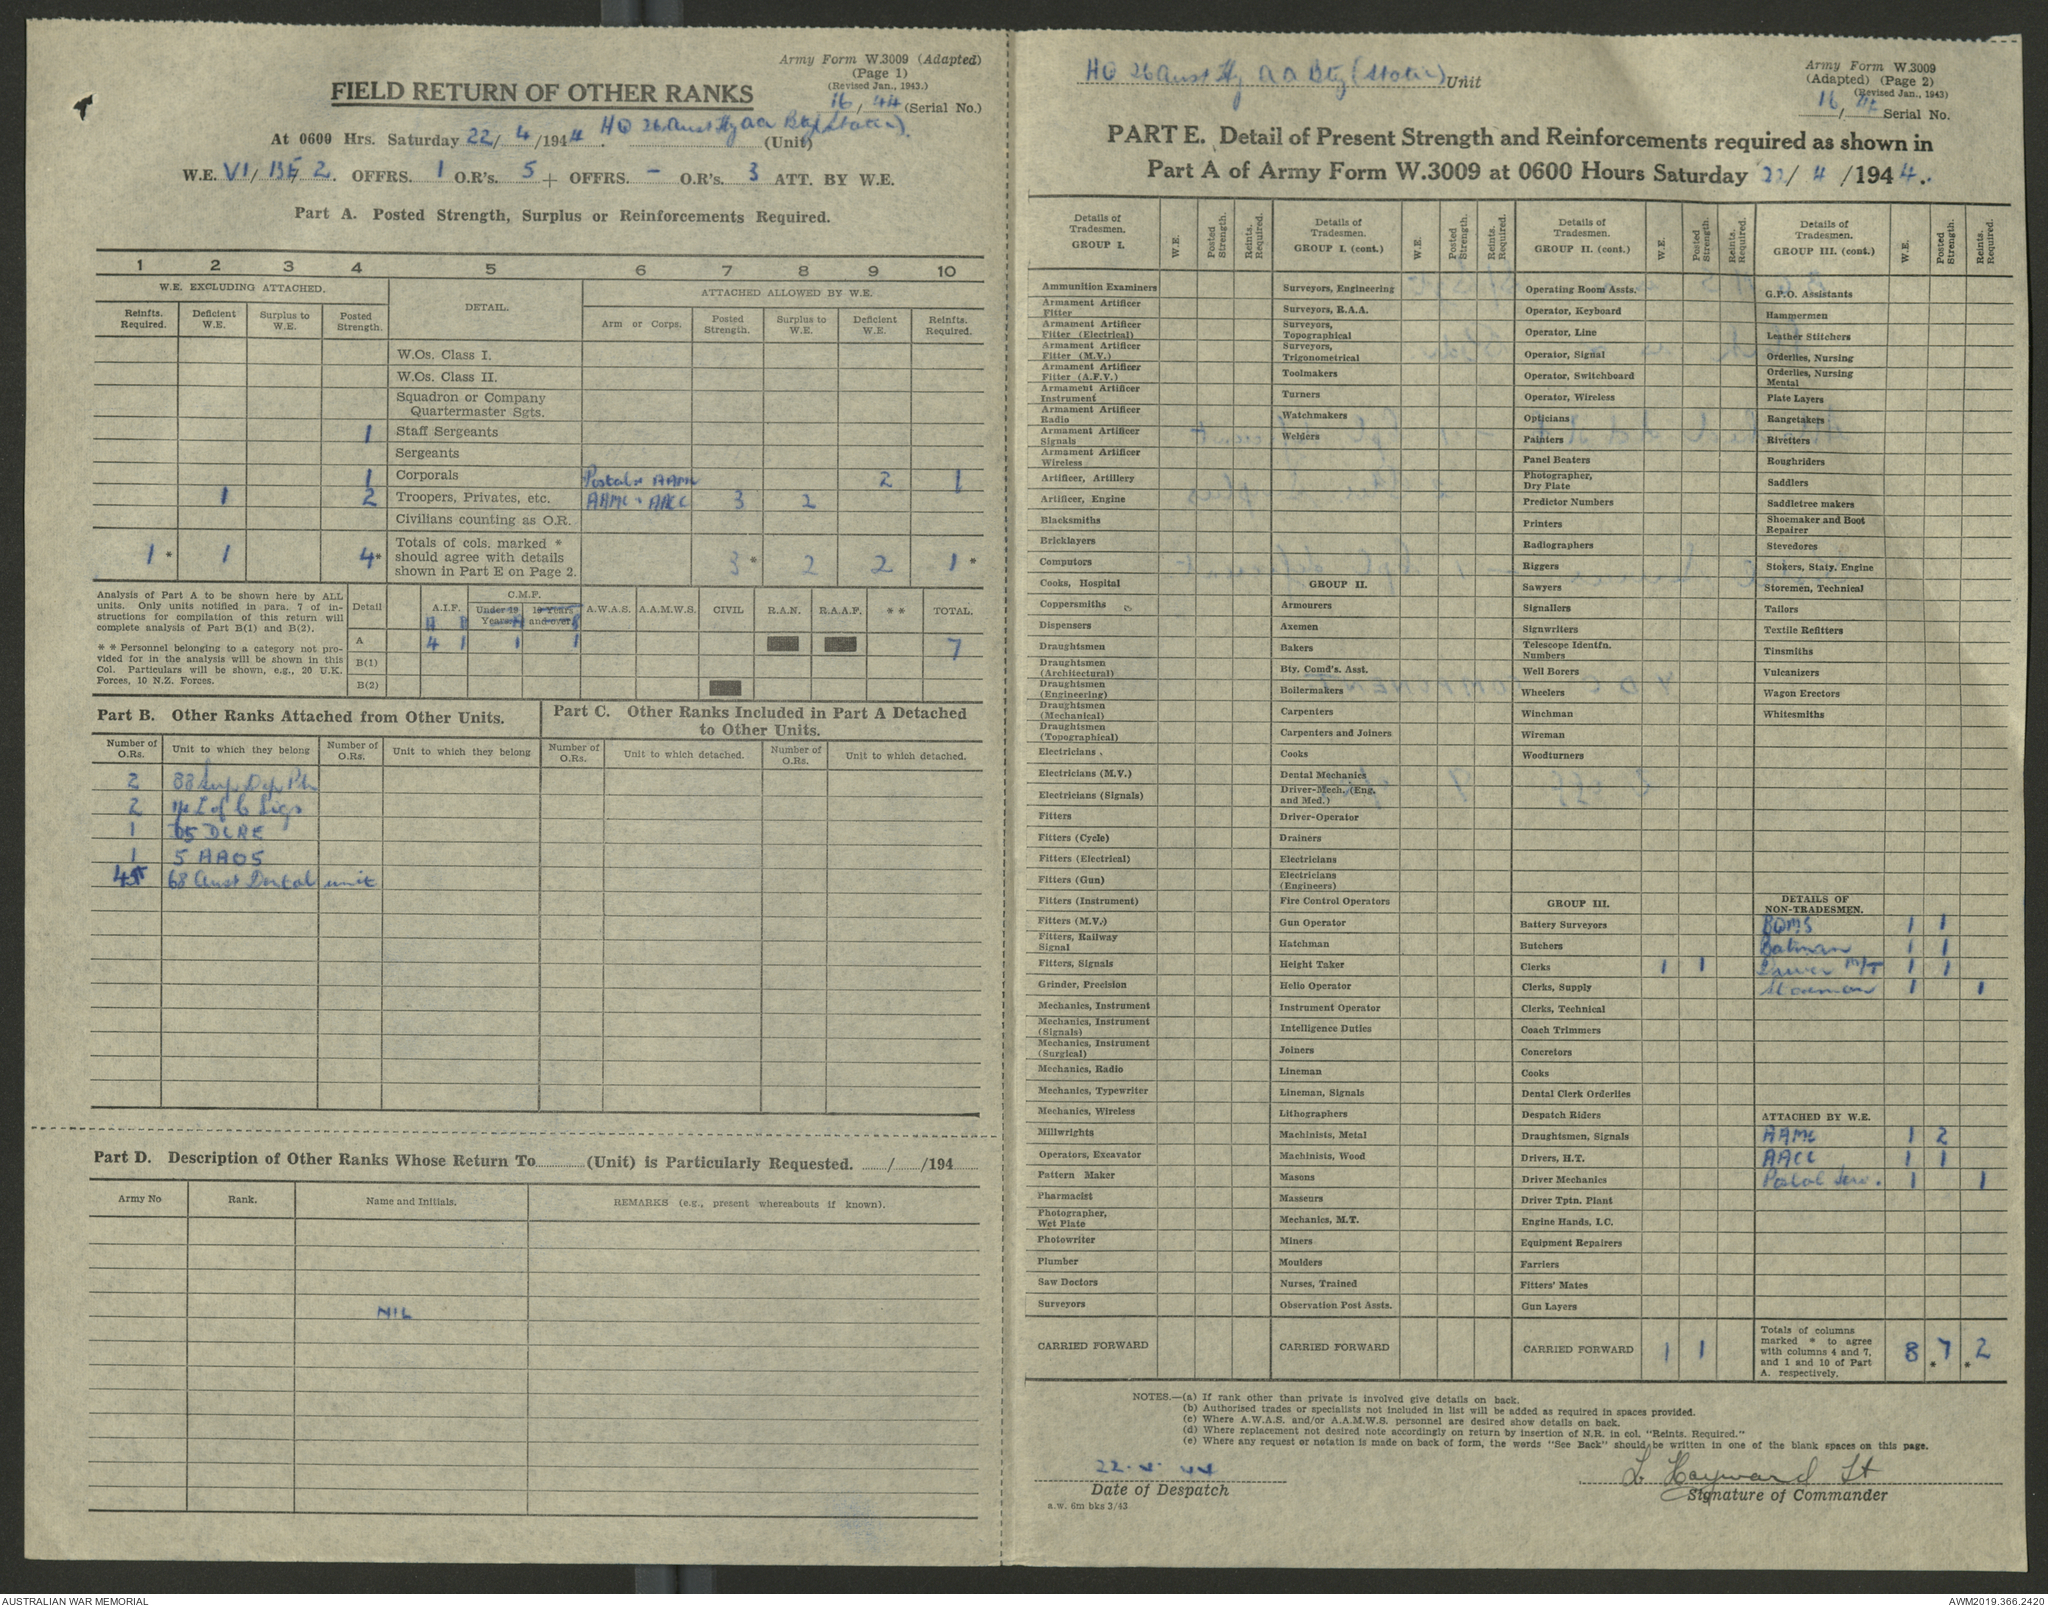 Army Form W.3009 (Adapted)
(Page 1)
(Revised Jan., 1943.)
16/44 (Serial No.)
FIELD RETURN OF OTHER RANKS
At 0600 Hrs. Saturday 22/4/1944. HQ 26 Aust Hy AA Bty (Static). (Unit)
W.E. VI/ 2. OFFRS. 1 O.R's. 5 + OFFRS. - O.R's. 3 ATT. BY W.E.
Part A. Posted Strength, Surplus or Reinforcements Required.
1 2 3 4 5 6 7 8 9 10
W.E. EXCLUDING ATTACHED. DETAIL. ATTACHED ALLOWED BY W.E.
Reinfts. Required. Deficient W.E. Surplus to W.E. Posted Strength. Arm or Corps. Posted Strength. Surplus to W.E. Deficient W.E. Reinfts. Required.
W.Os. Class I.
W.Os. Class II.
Squadron or Company Quartermaster Sgts.
1 Staff Sergeants
Sergeants
1 Corporals Postal + AAMC 2 1
1 2 Troopers, Privates, etc. AAMC + AACC 3 2
Civilians counting as O.R.
1* 1 4* Totals of cols. marked * should agree with details shown in Part E on Page 2. 3* 2 2 1*
Analysis of Part A to be shown here by ALL units. Only units notified in para. 7 of instructions for compilation of this return will complete analysis of Part B(1) and B(2).
* * Personnel belonging to a category not provided for in the analysis will be shown in this Col. Particulars will be shown, e.g., 20 U.K. Forces, 10 N.Z. Forces.
Detail A.I.F. C.M.F. Under 19 Years 19 Years and over A.W.A.S. A.A.M.W.S. CIVIL R.A.N. R.A.A.F. * * TOTAL.
A B A B
A 4 1 1 1 7
B(1)
B(2)
Part B. Other Ranks Attached from Other Units.
Number of O.Rs. Unit to which they belong Number of O.Rs. Unit to which they belong
2 88 Sup Dep Pln
2 L of C Sigs
1 DCRE
1 5 AAOS
68 Aust Dental unit
Part C. Other Ranks Included in Part A Detached to Other Units.
Number of O.Rs. Unit to which detached. Number of O.Rs. Unit to which detached.
Part D. Description of Other Ranks Whose Return To (Unit) is Particularly Requested. / /194
Army No Rank. Name and Initials. REMARKS (e.g., present whereabouts if known).
NIL
HQ 26 Aust Hy AA Bty (Static) Unit
Army Form W.3009
(Adapted) (Page 2)
(Revised Jan., 1943)
16/44 Serial No.
PART E. Detail of Present Strength and Reinforcements required as shown in
Part A of Army Form W.3009 at 0600 Hours Saturday 22/4/1944.
Details of Tradesmen. GROUP I. W.E. Posted Strength. Reints. Required.
Ammunition Examiners
Armament Artificer Fitter
Armament Artificer Fitter (Electrical)
Armament Artificer Fitter (M.V.)
Armament Artificer Fitter (A.F.V.)
Armament Artificer Instrument
Armament Artificer Radio
Armament Artificer Signals
Armament Artificer Wireless
Artificer, Artillery
Artificer, Engine
Blacksmiths
Bricklayers
Computors
Cooks, Hospital
Coppersmiths
Dispensers
Draughtsmen
Draughtsmen (Architectural)
Draughtsmen (Engineering)
Draughtsmen (Mechanical)
Draughtsmen (Topographical)
Electricians
Electricians (M.V.)
Electricians (Signals)
Fitters
Fitters (Cycle)
Fitters (Electrical)
Fitters (Gun)
Fitters (Instrument)
Fitters (M.V.)
Fitters, Railway Signal
Fitters, Signals
Grinder, Precision
Mechanics, Instrument
Mechanics, Instrument (Signals)
Mechanics, Instrument (Surgical)
Mechanics, Radio
Mechanics, Typewriter
Mechanics, Wireless
Millwrights
Operators, Excavator
Pattern Maker
Pharmacist
Photographer, Wet Plate
Photowriter
Plumber
Saw Doctors
Surveyors
CARRIED FORWARD
Details of Tradesmen. GROUP I. (cont.) W.E. Posted Strength. Reints. Required.
Surveyors, Engineering
Surveyors, R.A.A.
Surveyors, Topographical
Surveyors, Trigonometrical
Toolmakers
Turners
Watchmakers
Welders
GROUP II.
Armourers
Axemen
Bakers
Bty. Comd's. Asst.
Boilermakers
Carpenters
Carpenters and Joiners
Cooks
Dental Mechanics
Driver-Mech. (Eng. and Med.)
Driver-Operator
Drainers
Electricians
Electricians (Engineers)
Fire Control Operators
Gun Operator
Hatchman
Height Taker
Helio Operator
Instrument Operator
Intelligence Duties
Joiners
Lineman
Lineman, Signals
Lithographers
Machinists, Metal
Machinists, Wood
Masons
Masseurs
Mechanics, M.T.
Miners
Moulders
Nurses, Trained
Observation Post Assts.
CARRIED FORWARD
Details of Tradesmen. GROUP II. (cont.) W.E. Posted Strength. Reints. Required.
Operating Room Assts.
Operator, Keyboard
Operator, Line
Operator, Signal
Operator, Switchboard
Operator, Wireless
Opticians
Painters
Panel Beaters
Photographer, Dry Plate
Predictor Numbers
Printers
Radiographers
Riggers
Sawyers
Signallers
Signwriters
Telescope Identfn. Numbers
Well Borers
Wheelers
Winchman
Wireman
Woodturners
GROUP III.
Battery Surveyors
Butchers
Clerks 1 1
Clerks, Supply
Clerks, Technical
Coach Trimmers
Concretors
Cooks
Dental Clerk Orderlies
Despatch Riders
Draughtsmen, Signals
Drivers, H.T.
Driver Mechanics
Driver Tptn. Plant
Engine Hands, I.C.
Equipment Repairers
Farriers
Fitters' Mates
Gun Layers
CARRIED FORWARD 1 1
Details of Tradesmen. GROUP III. (cont.) W.E. Posted Strength. Reints. Required.
G.P.O. Assistants
Hammermen
Leather Stitchers
Orderlies, Nursing
Orderlies, Nursing Mental
Plate Layers
Rangetakers
Rivetters
Roughriders
Saddlers
Saddletree makers
Shoemaker and Boot Repairer
Stevedores
Stokers, Staty. Engine
Storemen, Technical
Tailors
Textile Refitters
Tinsmiths
Vulcanizers
Wagon Erectors
Whitesmiths
DETAILS OF NON-TRADESMEN.
BQMS 1 1
Batman 1 1
Driver M/T 1 1
Storeman 1 1
ATTACHED BY W.E.
AAMC 1 2
AACC 1 1
Postal Serv. 1 1
Totals of columns marked * to agree with columns 4 and 7, and 1 and 10 of Part A. respectively. 8 *7 *2
NOTES.—(a) If rank other than private is involved give details on back.
(b) Authorised trades or specialists not included in list will be added as required in spaces provided.
(c) Where A.W.A.S. and/or A.A.M.W.S. personnel are desired show details on back.
(d) Where replacement not desired note accordingly on return by insertion of N.R. in col. "Reints. Required."
(e) Where any request or notation is made on back of form, the words "See Back" should be written in one of the blank spaces on this page.
22.4.44
Date of Despatch
a.w. 6m bks 3/43
L Hayward Lt
Signature of Commander
AUSTRALIAN WAR MEMORIAL
AWM2019.366.2420